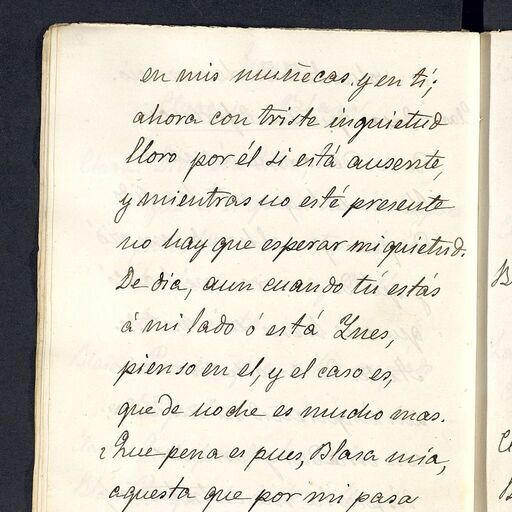 en mis muñecas y en tí;
ahora con triste inquietud
lloro por él si está ausente,
y mientras no esté presente
no hay que esperar mi quietud.
De dia, aun cuando tú estás
á mi lado ó está Ynes,
pienso en el, y el caso es,
que de noche es mucho mas.
¿Que pena es pues, Blasa mia,
aquesta que por mi pasa